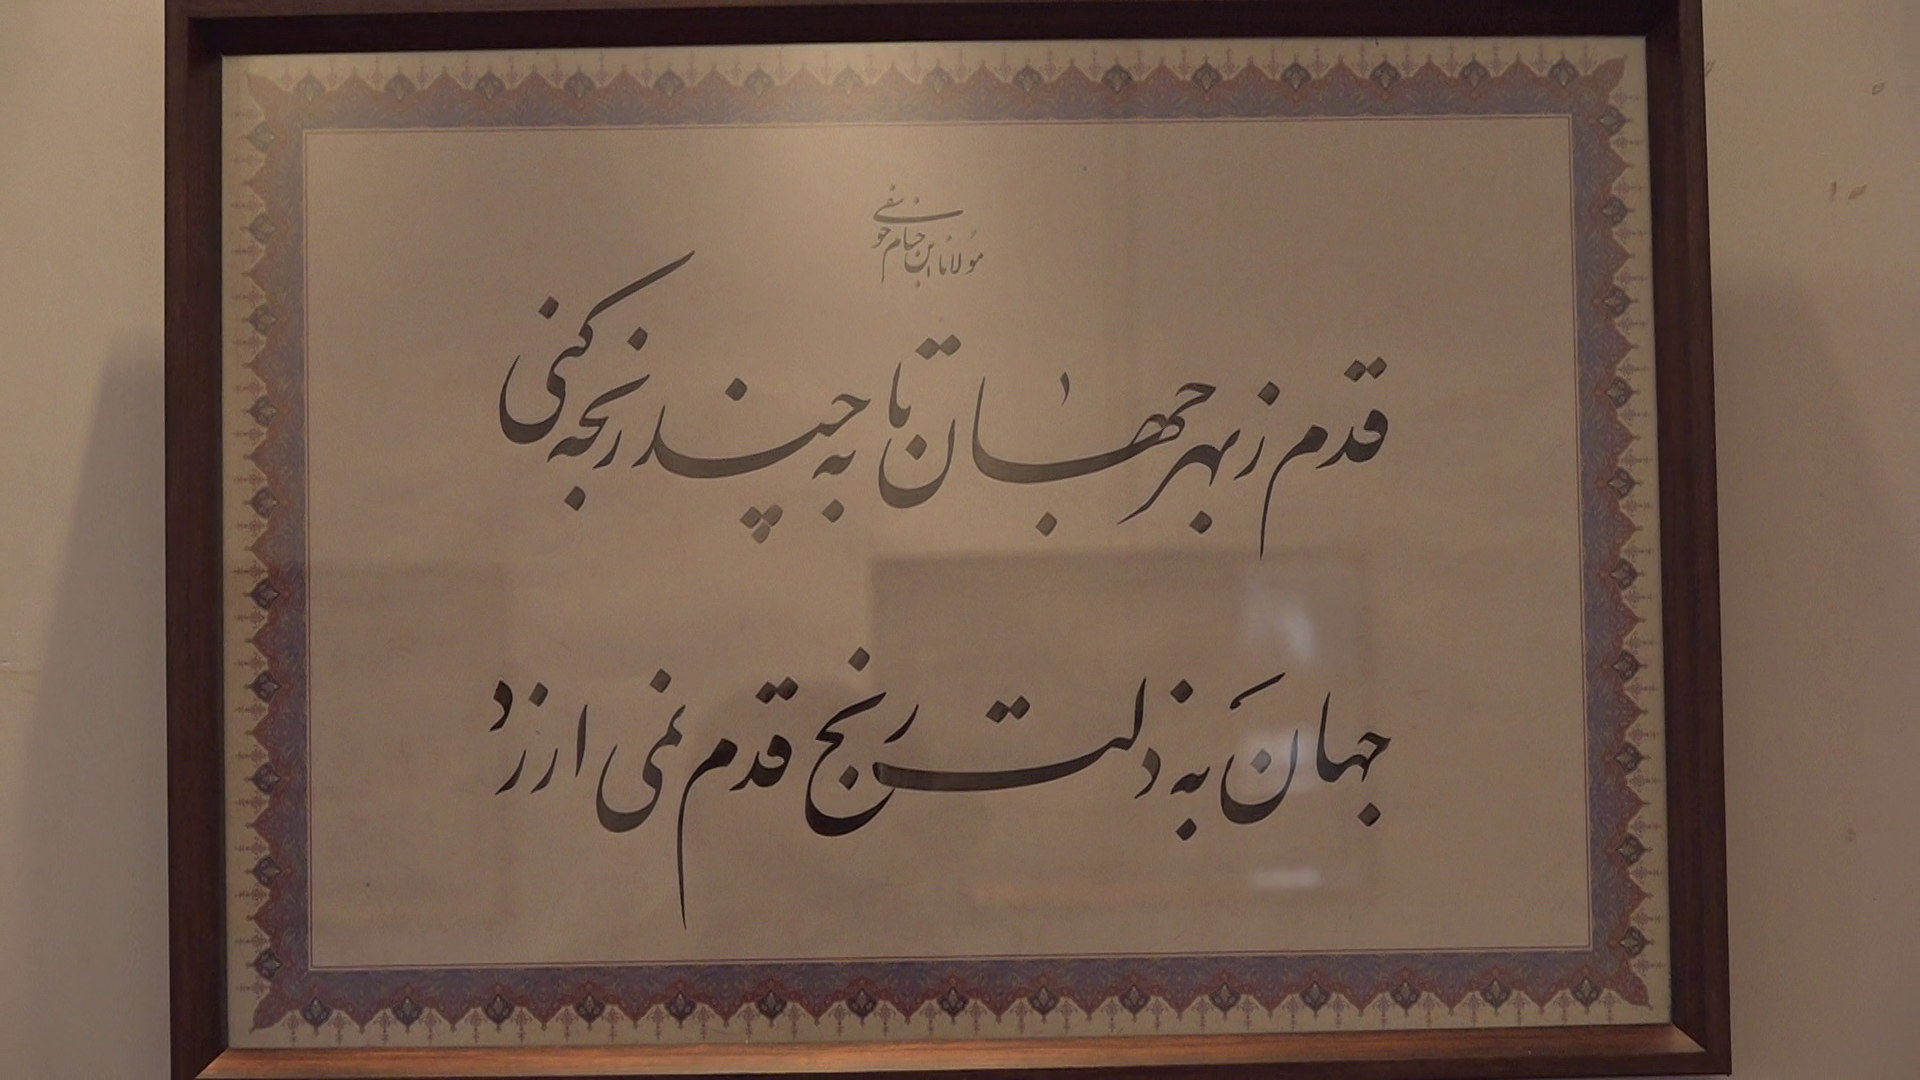 مولانا ابن حسام خوسفی
قدم ز بهر جهان تا به چند رنجه کنی
جهان به ذلت رنج قدم نمی ارزد